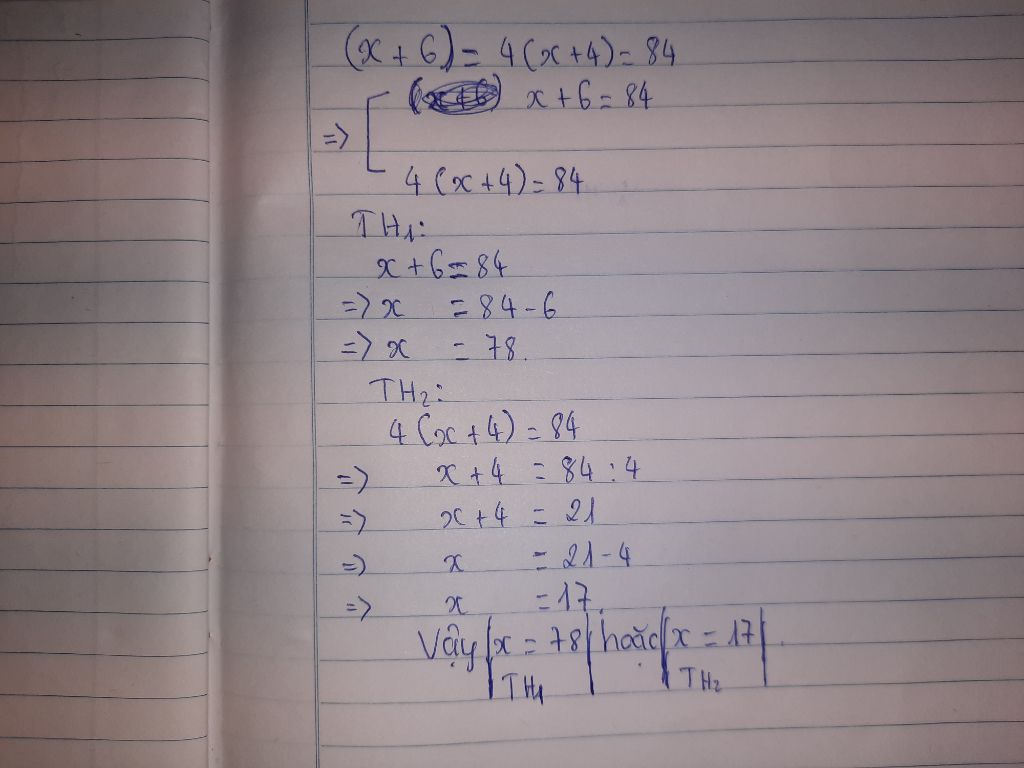 (x + 6) = 4(x+4) = 84
x + 6 = 84
=> [
4(x+4) = 84
TH1:
x + 6 = 84
=> x = 84 - 6
=> x = 78.
TH2:
4(x+4) = 84
=> x + 4 = 84 : 4
=> x + 4 = 21
=> x = 21 - 4
=> x = 17.
Vậy | x = 78 | hoặc | x = 17 | .
TH1 TH2